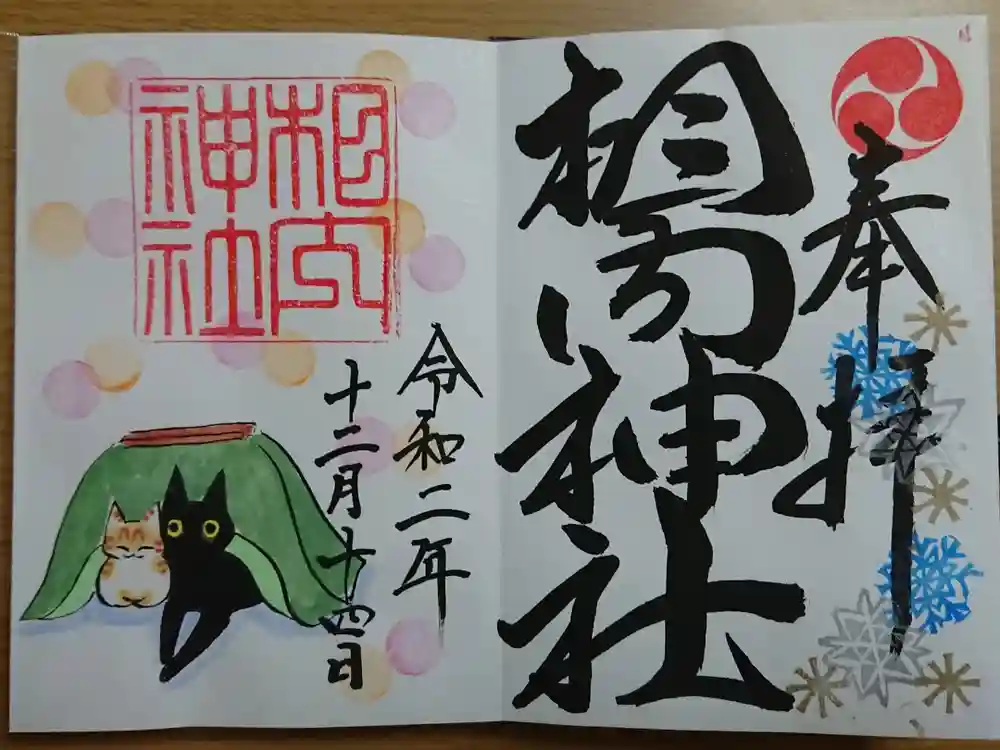 奉拝
相内神社
相内
神社
令和二年
十二月十四日